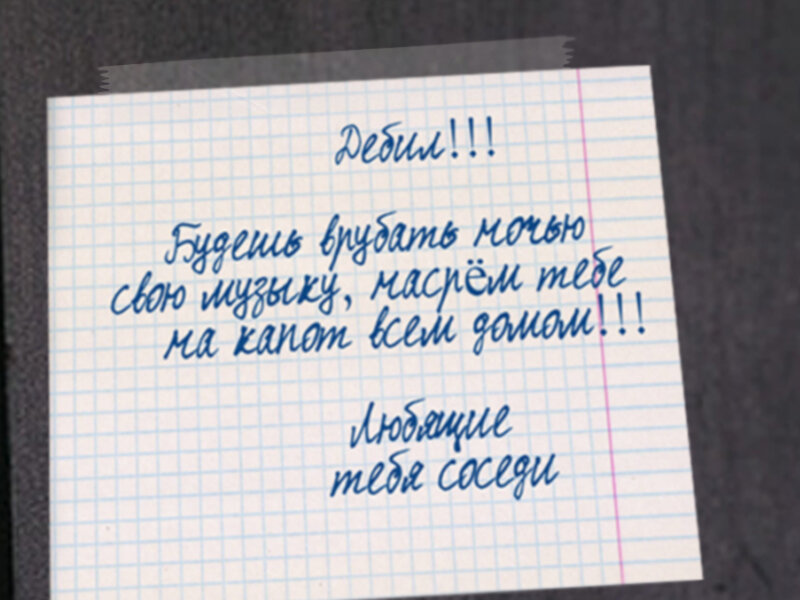 Дебил!!!
Будешь врубать ночью
свою музыку, насрём тебе
на капот всем домом!!!
Любящие
тебя соседи